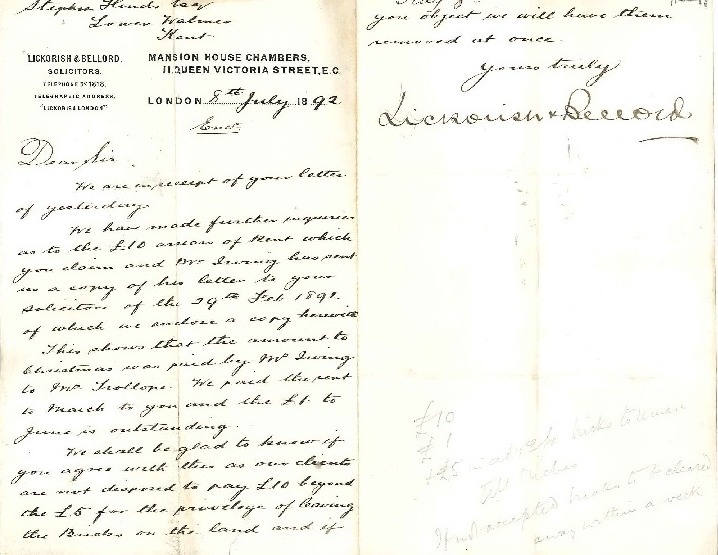 Stephen Hinds Esq
Lower Walmer
Kent
LICKORISH & BELLORD.
SOLICITORS.
TELEPHONE Nº 1618.
TELEGRAPHIC ADDRESS,
"LICKORISH LONDON"
MANSION HOUSE CHAMBERS,
11, QUEEN VICTORIA STREET, E.C.
LONDON 8th July 1892
Encl
Dear Sir
We are in receipt of your letter
of yesterday.
We have made further inquiries
as to the £10 arrears of Rent which
you claim and Mr Irving has sent
us a copy of his letter to your
solicitors of the 29th Feb 189
of which we enclose a copy herewith
This shows that the amount to
Christmas was paid by Mr Irving
to Mr Trollope. We paid the rent
to March to you and the £1 to
June is outstanding.
We shall be glad to know if
you agree with this as our clients
are not disposed to pay £10 beyond
the £5 for the privilege of leaving
the Bricks on the land and if
you object we will have them
removed at once.
Yours truly
Lickorish & Bellord
£10
£1
£5 bricks to remain
till
If not accepted bricks to be cleared
away within a week